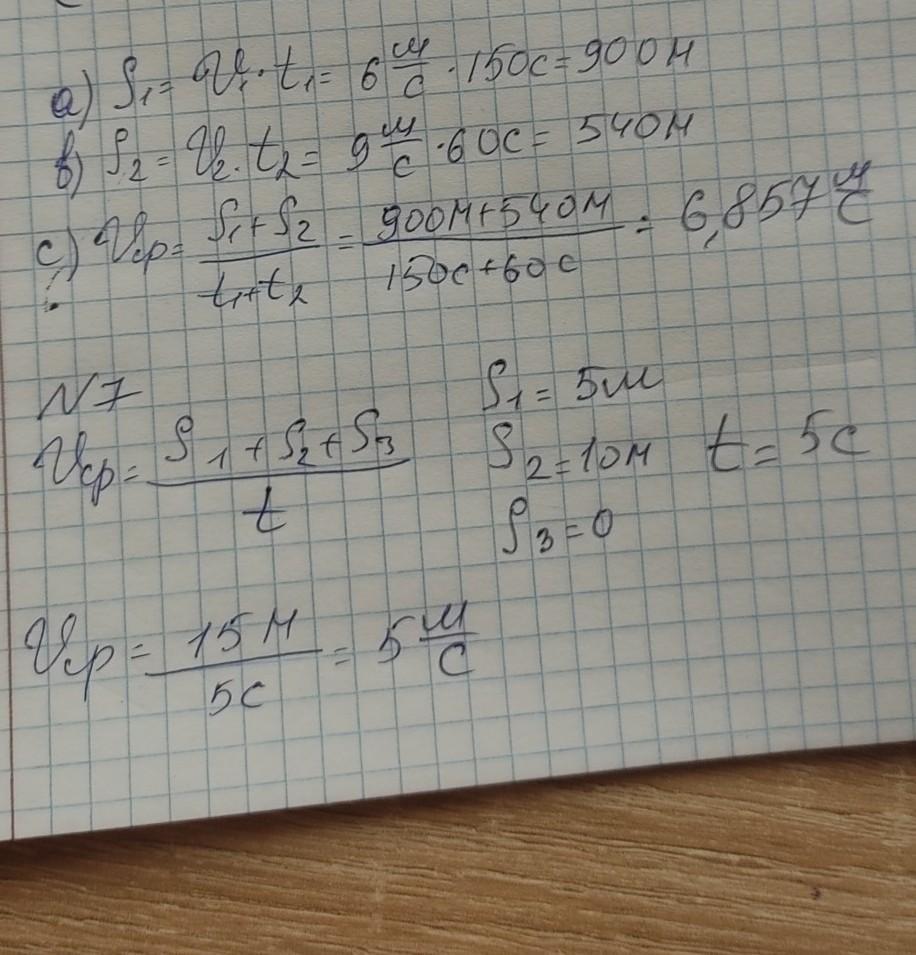 a) S₁ = V₁ · t₁ = 6 м/с · 150с = 900м
b) S₂ = V₂ · t₂ = 9 м/с · 60с = 540м
c) Vср = (S₁ + S₂)/(t₁ + t₂) = (900м + 540м)/(150с + 60с) = 6,857 м/с
N7
Vср = (S₁ + S₂ + S₃)/t
S₁ = 5м
S₂ = 10м t = 5с
S₃ = 0
Vср = 15м/5с = 5 м/с